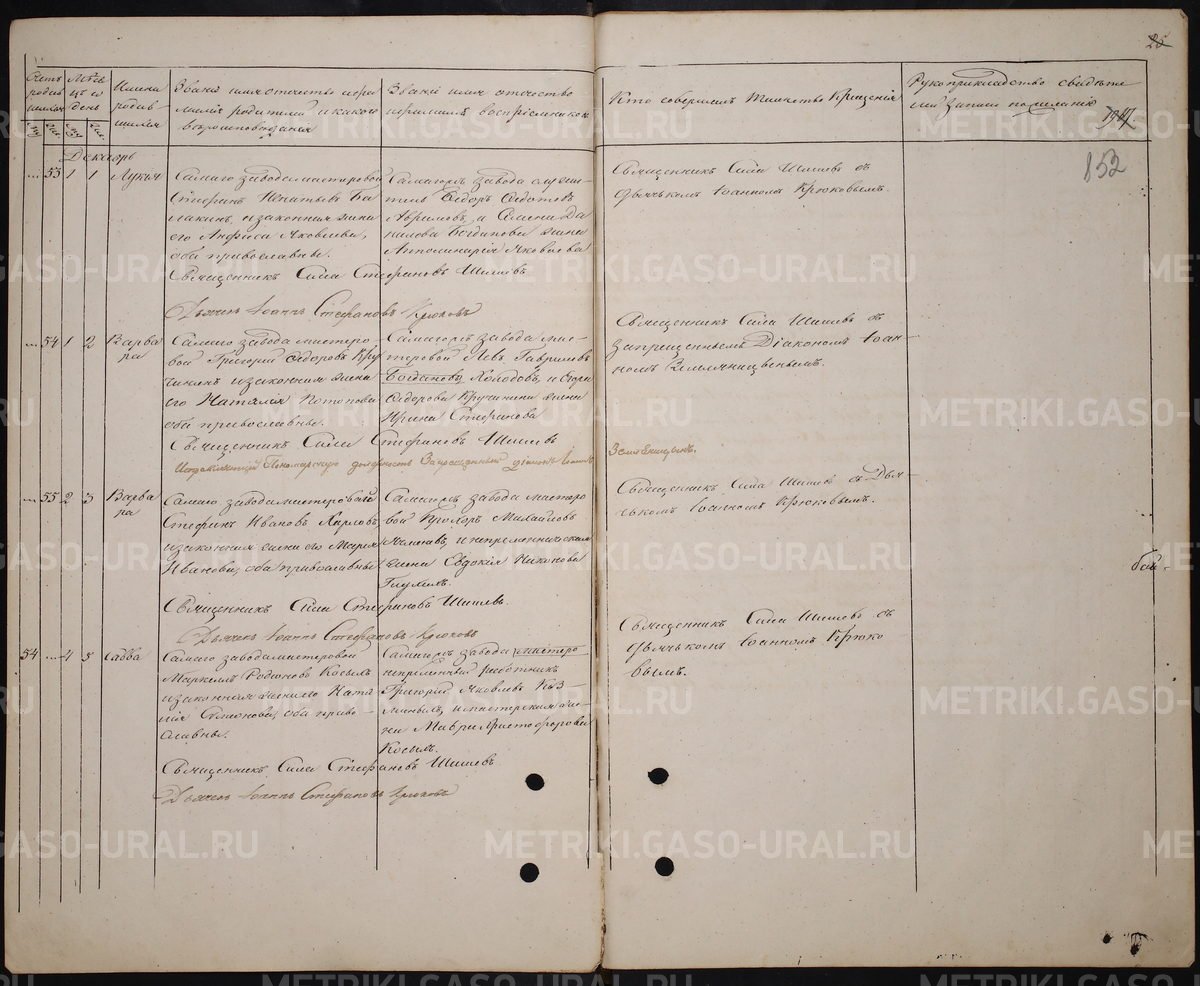 Счетъ родившихся
Мѣсяцъ и день
Имена родившихся
Званiе имя отчество и фамилiя родителей и какого вѣроисповѣданiя
Званiе имя отчество и фамилiя воспрiемниковъ
Кто совершалъ Таинство Крещенiя
Рукоприкладство свидѣтелей записи по желанiю
152
Декабрь
53 1 1
Самаго завода мастеровой
Стефанъ Игнатьевъ Ба
лакинъ, и законная жена
его Анфиса Яковлева,
оба православные.
Самагожъ завода служи
тель Ѳедоръ Ѳедотовъ
и Семена Да
нилова Богданова жена
Аполинарiя Яковлева
Священникъ Сила Шишевъ съ
дьячькомъ Iоанномъ Крюковымъ.
Священникъ Сила Стефановъ Шишевъ
Дьячекъ Iоаннъ Стефановъ Крюковъ
54 1 2 Варва
ра
Самаго завода мастеро
вой Григорiй Ѳедоровъ Кру
чининъ и законная жена
его Наталiя Потопова
оба православные.
Самагожъ завода мас
теровой Левъ Гавриловъ
Богдановъ Холодовъ, и Егора
Ѳедорова Кручинина жена
Ирина Стефанова
Священникъ Сила Шишевъ съ
запрещеннымъ Дiакономъ Iоан
номъ
Священникъ Сила Стефановъ Шишевъ
Исправляющiй Пономарскую должность Запрещенный дiаконъ Iоаннъ
55 2 3 Варва
ра
Самаго завода мастеровой
Стефанъ Ивановъ Карповъ,
и законная жена его Марiя
Иванова, оба православные
Самагожъ завода мастеро
вой Прохоръ Михайловъ
и непременническая
жена Евдокiя Никонова
Глумилъ.
Священникъ Сила Шишевъ съ Дья
чькомъ Iоанномъ Крюковымъ.
Священникъ Сила Стефановъ Шишевъ.
Дьячекъ Iоаннъ Стефановъ Крюковъ
54 4 5 Савва
Самаго завода мастеровой
Маркелъ Родiоновъ Косыхъ
и законная жена его Ната
лiя Семенова, оба право
славные.
Самагожъ завода мастеро
непременный работникъ
Григорiй Яковлевъ Каз
и мастерская же
на Мавра Христофорова
Косыхъ.
Священникъ Сила Шишевъ съ
дьячькомъ Iоанномъ Крюко
вымъ.
Священникъ Сила Стефановъ Шишевъ
Дьячекъ Iоаннъ Стефановъ Крюковъ
METRIKI.GASO-URAL.RU